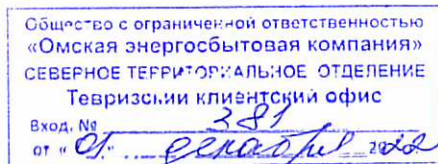 Общество с ограниченной ответственностью
«Омская энергосбытовая компания»
СЕВЕРНОЕ ТЕРРИТОРИАЛЬНОЕ ОТДЕЛЕНИЕ
Тевризский клиентский офис
Вход. № 381
от « 01 » декабря 2022